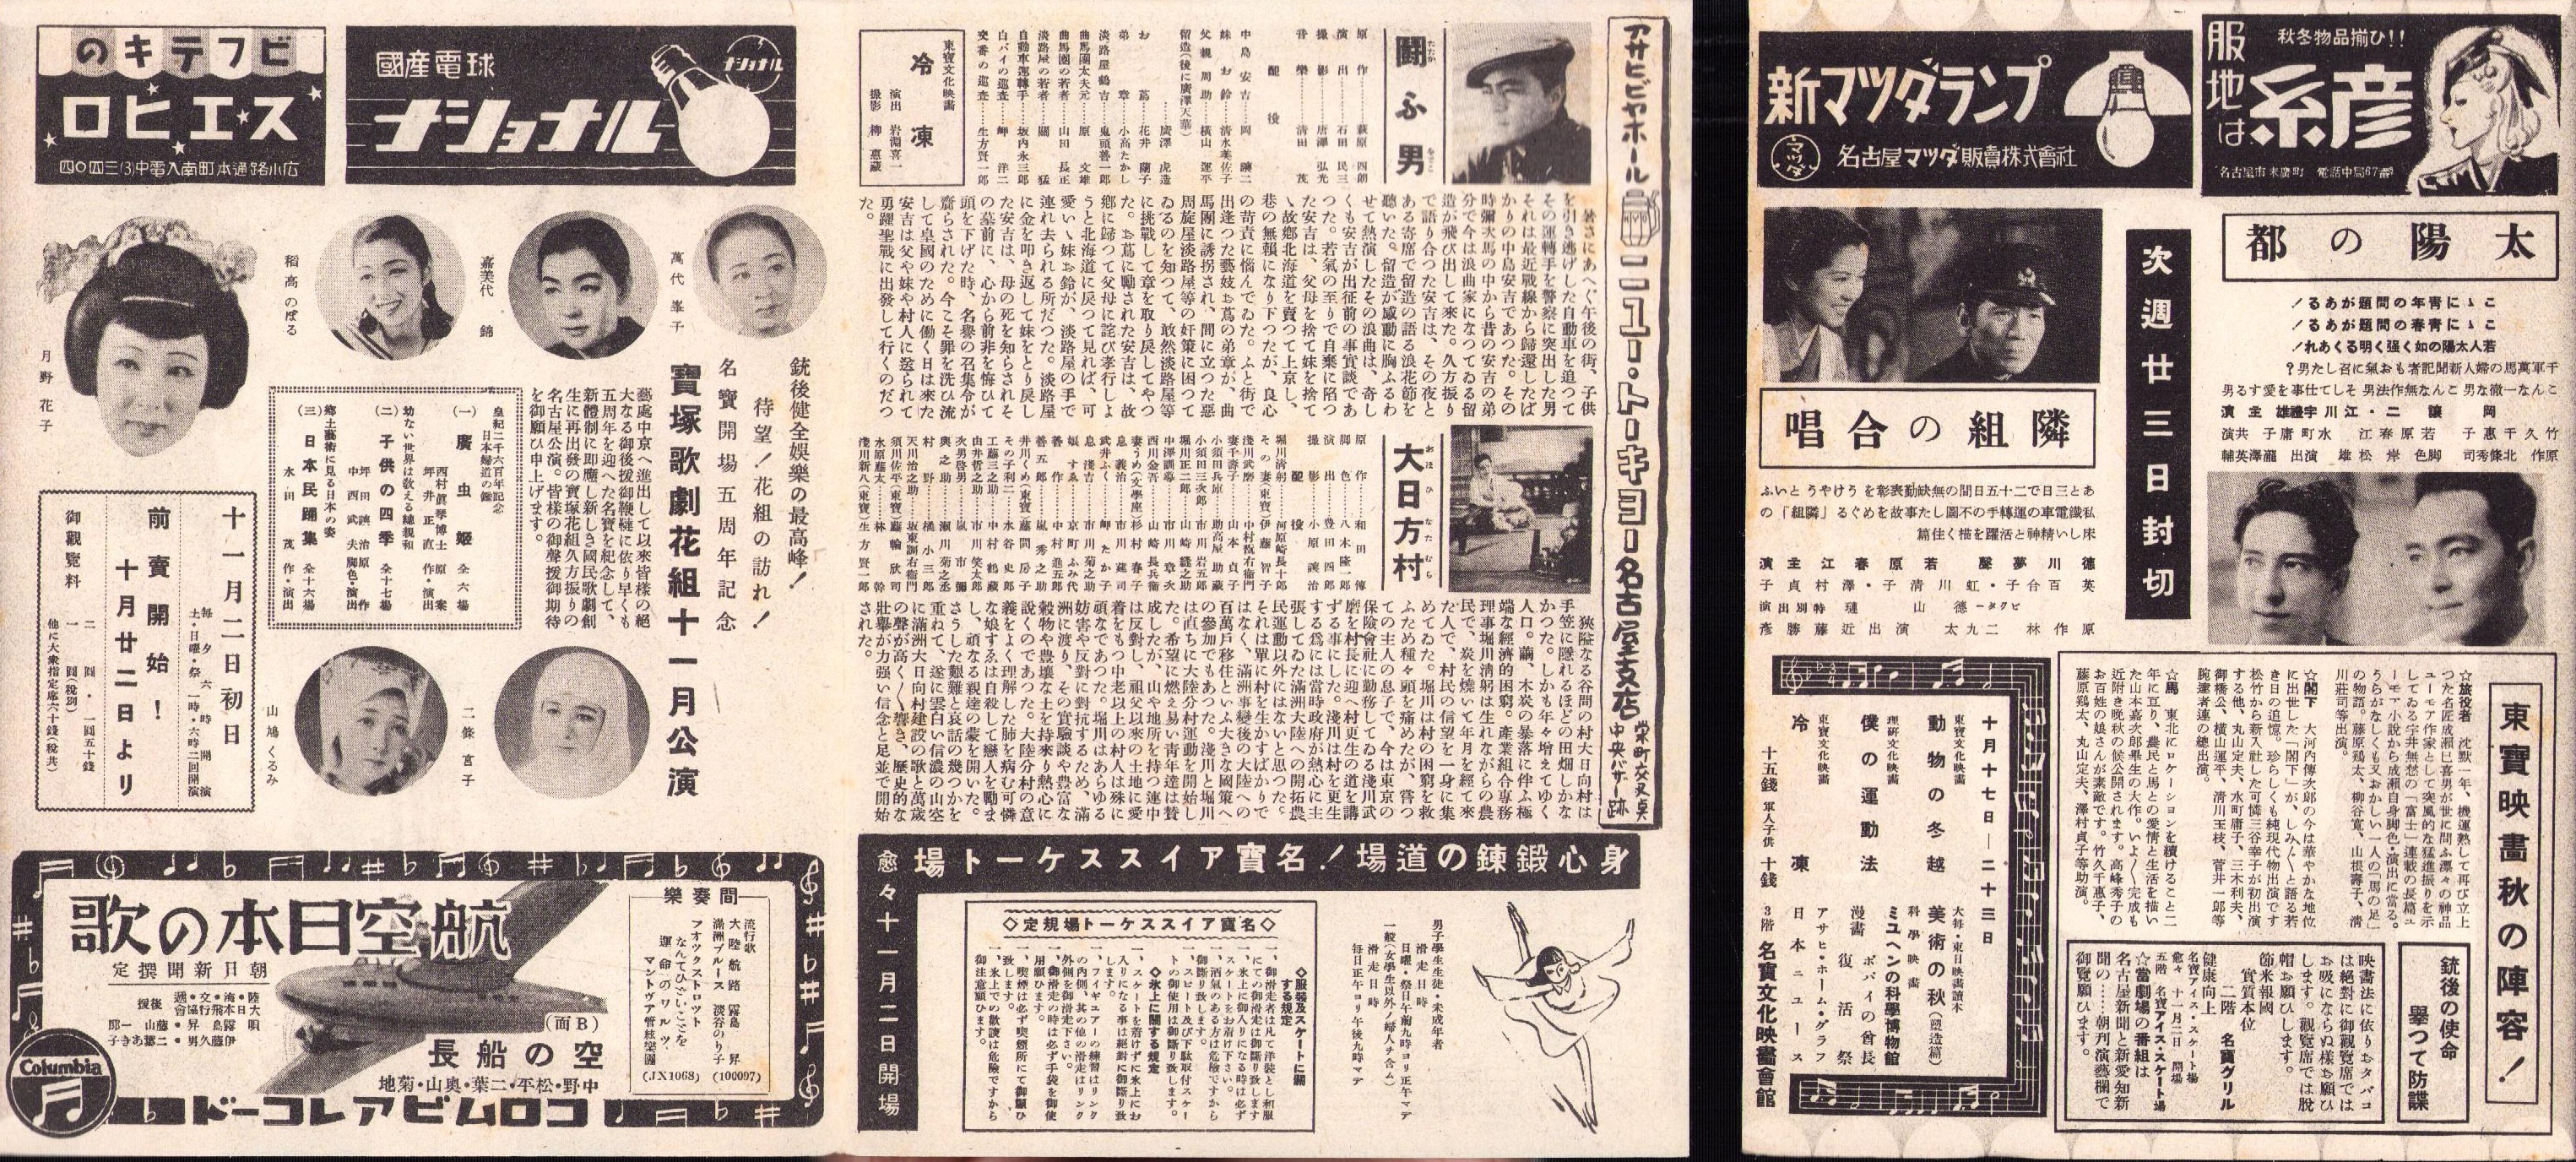 ビフテキの
スエヒロ
広小路通本町南入電中(3)三四〇四
國産電球
ナショナル
ナショナル
萬代 峯子
嘉美代 錦
稲高 のぼる
月野 花子
銃後健全娯樂の最高峰！
待望！花組の訪れ！
名寶開場五周年記念
寶塚歌劇花組十一月公演
藝處中京へ進出して以來皆樣の絕
大なる御後援御鞭韃に依り早くも
五周年を迎へた名寶を紀念して、
新體制に即應し新しき國民歌劇創
生に再出發の寶塚花組久方振りの
名古屋公演。皆樣の御聲援御期待
を御願ひ申上げます。
皇紀二千六百年記念
日本婦道の鑑
(一) 廣虫姫 全六場
西村眞琴博士 原案
坪井正直 作・演出
幼ない世界は敎える總親和
(二) 子供の四季 全十七場
坪田譲治 原作
中西武夫 脚色・演出
郷土藝術に見る日本の姿
(三) 日本民踊集 全十六場
水田茂 作・演出
二條 宮子
山鳩 くるみ
十一月二日初日
毎夕六時開演
土・日曜・祭 一時・六時二回開演
前賣開始！
十月廿二日より
御觀覽料
二圓・一圓五十錢
一圓(稅別)
他に大衆指定席六十錢(稅共)
航空日本の歌
朝日新聞撰定
陸・海・文・遞
大日本飛行協會 後援
唄 霧島昇・藤山一郎
伊藤久男・二葉あき子
(B面)
空の船長
中野・松平・二葉・奥山・菊地
コロムビアレコード
Columbia
間奏樂
流行歌
大陸航路 霧島昇
滿洲ブルース 淡谷のり子
(100097)
アオツクストロツト
なんてひどいことを
運命のワルツ
マントヴア管絃樂團
(JX1068)
アサヒビヤホール ニユー・トーキヨー名古屋支店
栄町交叉点
中央バザー跡
闘ふ男
たたか をとこ
原作……萩原四朗
演出……石田民三
撮影……唐澤弘光
音樂……清田茂
配役
中島安吉……岡讓二
妹お鈴……清水美佐子
父親周助……橫山運平
留造(後に廣澤天華)
……廣澤虎造
お蔦……花井蘭子
弟章……小高たかし
淡路屋鶴吉……鬼頭善一郎
曲馬團太夫元……原文雄
曲馬團の若者……山田長正
淡路屋の若者……關猛
自動車運轉手……坂内永三郎
白バイの巡査……岬洋二
交番の巡査……生方賢一郎
東寶文化映畫
冷凍
演出 岩淵喜一
撮影 柳惠藏
暑さにあへぐ午後の街、子供
を引き逃げした自動車を追つて
その運轉手を警察に突出した男
それは最近戰線から歸還したば
かりの中島安吉であつた。その
時彌次馬の中から昔の安吉の弟
分で今は浪曲家になつてゐる留
造が飛び出して來た。久方振り
で語り合つた安吉は、その夜と
ある寄席で留造の語る浪花節を
聽いた。留造が感動に胸ふるわ
せて熱演したその浪曲は、奇し
くも安吉が出征前の事實談であ
つた。若氣の至りで自棄に陷つ
た安吉は、父母を捨て妹を捨て
、故郷北海道を賣つて上京し、
巷の無賴になり下つたが、良心
の苛責に惱んでゐた。ふと街で
出逢つた藝妓お蔦の弟章が、曲
馬團に誘拐され、間に立つた惡
周旋屋淡路屋等の奸策に困つて
ゐるのを知つて、敢然淡路屋等
に挑戰して章を取り戻してやつ
た。お蔦に勵された安吉は、故
郷に歸つて父母に詫び孝行しよ
うと北海道に戻つて見れば、可
愛い〻妹お鈴が、淡路屋の手で
連れ去られる所だつた。淡路屋
に金を叩き返して妹をとり戻し
た安吉は、母の死を知らされそ
の墓前に、心から前非を悔ひて
頭を下げた時、名譽の召集令が
齎らされた。今こそ罪を洗ひ流
して皇國のために働く日は來た
安吉は父や妹や村人に送られて
勇躍聖戰に出發して行くのだつ
た。
大日方村
おほ ひ なた むら
原作……和田傳
脚色……八木隆一郎
演出……豊田四郎
撮影……小原讓治
配役
堀川淸躬……河原崎長十郎
その妻(東寶)……伊藤智子
淺川武麿……中村翫右衞門
妻千壽子……山本貞子
小須田兵庫……助高屋助藏
小須田三次郎……市川岩五郎
堀川正二郎……山崎
中澤訓導……市川章次
西川金吾……山崎長兵衞
妻うめ(文學座)……杉村春子
息義治……市川莚司
武井ふく……岬たか子
息淺吉……市川菊之助
娘すゑ……京町ふみ代
善作……中村進五郎
善五郎……嵐秀之助
井川くめ(東寶)……藤間房子
その子利二……水谷史郎
工藤三之助……中村鶴藏
由井哲之助……市川笑太郎
次男啓男……嵐市彌
奧之助……瀬川菊之丞
村野……橘小三郎
天川治之助……坂東調右衞門
須川佐平(東寶)……藤輪欣司
水原藤太……林幹
淺川新八(東寶)……生方賢一郎
狹隘なる谷間の村大日向村は
手笠に隱れるほどの田畑しかな
かつた。しかも年々增えてゆく
人口。繭、木炭の暴落に伴ふ極
端な經濟的困窮。產業組合專務
理事堀川淸躬は生れながらの農
民で、炭を燒いて年月を經て來
た人で、村民の信望を一身に集
めてゐた。堀川は村の困窮を救
ふため種々頭を痛めたが、嘗つ
ての主人の息子で、今は東京の
保險會社に勤務してゐる淺川武
麿を村長に迎へ村更生の道を講
ずる事にした。淺川は村を更生
する爲には當時政府が熱心に主
張してゐた滿洲大陸への開拓農
民運動以外にはないと思つた。
それは單に村を生かすばかりで
はなく、滿洲事變後の大陸への
百萬戶移住といふ大きな國策へ
の參加でもあつた。淺川と堀川
は直ちに大陸分村運動を開始し
た。希望に燃え易い青年達は贊
成したが、山や地所を持つ連中
は反對し、祖父以來の土地に愛
着をもつ中老以上の村人は殊に
頑なであつた。堀川はあらゆる
妨害や反對に對抗するため、滿
洲に渡り、その實驗談や豊富な
穀物や豊壤な土を持來り熱心に
説くのであつた。大陸分村の意
義をよく理解した肺を病む可憐
な娘すゑは自殺して戀人を勵ま
し、頑なる親達の蒙を開いた。
さうした艱難と哀話の幾つかを
重ねて、遂に雲白い信濃の山空
に滿洲大日向村建設の歌と萬歲
の聲が高く〳〵響き、歷史的な
壯擧が力强い信念と足並で開始
された。
身心鍛錬の道場！名寶アイススケート場
愈々十一月二日開場
男子學生生徒・未成年者
滑走日時
日曜・祭日午前九時ヨリ正午マデ
一般(女學生以外ノ婦人チ含ム)
滑走日時
毎日正午ヨリ午後九時マデ
◇名寶アイススケート場規定◇
◇服裝及スケートに關する規定
一、御滑走者は凡て洋裝とし和服
にての御滑走は御斷り致します
一、氷上に御入りになる時は必ず
スケートをお着け下さい。
一、酒氣のある方は危險ですから
御斷り致します。
一、スピード及び下駄取付スケー
トの御使用は御斷り致します。
◇氷上に關する規定
一、スケートを着けずに氷上にお
入りになる事は絕對に御斷り致
します。
一、フイギユアーの練習はリンク
の内側、其の他の滑走はリンク
外側を御滑走下さい。
一、御滑走の時は必ず手袋を御使
用願ひます。
一、喫煙は必ず喫煙所にて御願ひ
致します。
一、氷上での歡談は危險ですから
御注意願ひます。
新マツダランプ
マツダ
名古屋マツダ販賣株式會社
秋冬物品揃ひ!!
服地は
糸彦
名古屋市末廣町 電話中局67番
次週廿三日封切
太陽の都
こゝに青年の問題がある！
こゝに青春の問題がある！
若人太陽の如く强く明るくあれ！
千軍萬馬の婦人新聞記者もお氣に召した男？
こんな一徹な男 こんな無作法男 そして仕事を愛する男
岡讓二・江川宇禮雄 主演
竹久千惠子 若原春江 水町庸子 共演
原作 北條秀司 脚色 岸松雄 演出 瀧澤英輔
隣組の合唱
あと三日で二十五日間の無缺勤表彰をうけやうといふ
私鐵電車の運轉手の不圖した事故をめぐる「隣組」の
床しい精神と活躍を描く佳篇
德川夢聲 若原春江 主演
英百合子・虹川清子・澤村貞子
ビクター 德山璉 特別出演
原作 林二九太 演出 近藤勝彦
十月十七日—二十三日
東寶文化映畫
動物の冬越
理硏文化映畫
僕の運動法
東寶文化映畫
冷凍
大每・東日映畫讀本
美術の秋(塑造篇)
科學映畫
ミュヘンの科學博物館
漫畫 ポパイの酋長
復活祭
アサヒ・ホーム・グラフ
日本ニュース
十五錢 軍人子供 十錢
3階 名寶文化映畫會館
東寶映畫秋の陣容！
☆旅役者 沈默一年、機運熟して再び立上
つた名匠成瀨巳喜男が世に問ふ凜々の神品
ユーモア作家として突風的な猛進振りを示
してゐる宇井無愁の「富士」連載の長篇ユ
ーモア小說から成瀨自身脚色・演出に當る。
うらがなしくも又おかしい一人の「馬の足」
の物語。藤原鷄太、柳谷寬、山根壽子、淸
川荘司等出演。
☆閣下 大河内傳次郎の今は華やかな地位
に出世した「閣下」が、しみ〴〵と語る若
き日の追憶。珍らしくも純現代物出演です
松竹から新入社した可憐三谷幸子が初出演
する他、丸山定夫、水町庸子、三木利夫、
御橋公、橫山運平、淸川玉枝、菅井一郎等
腕達者連の總出演。
☆馬 東北にロケーションを續けること二
年に亙り、農民と馬との愛情と生活を描い
た山本嘉次郎畢生の大作。いよ〳〵完成も
近附き晩秋の候公開されます。高峰秀子の
お百姓の娘さんが素敵です。竹久千惠子、
藤原鷄太、丸山定夫、澤村貞子等助演。
銃後の使命
擧つて防諜
映畫法に依りおタバコ
は絕對に御觀覽席では
お吸ひにならぬ樣お願ひ
します。觀覽席では脫
帽お願ひします。
節米報國
實質本位
二階 名寶グリル
健康向上
名寶アイス・スケート場
愈々 十一月二日 開場
五階 名寶アイス・スケート場
☆當劇場の番組は
名古屋新聞と新愛知新
聞の……朝刊演藝欄で
御覽願ひます。